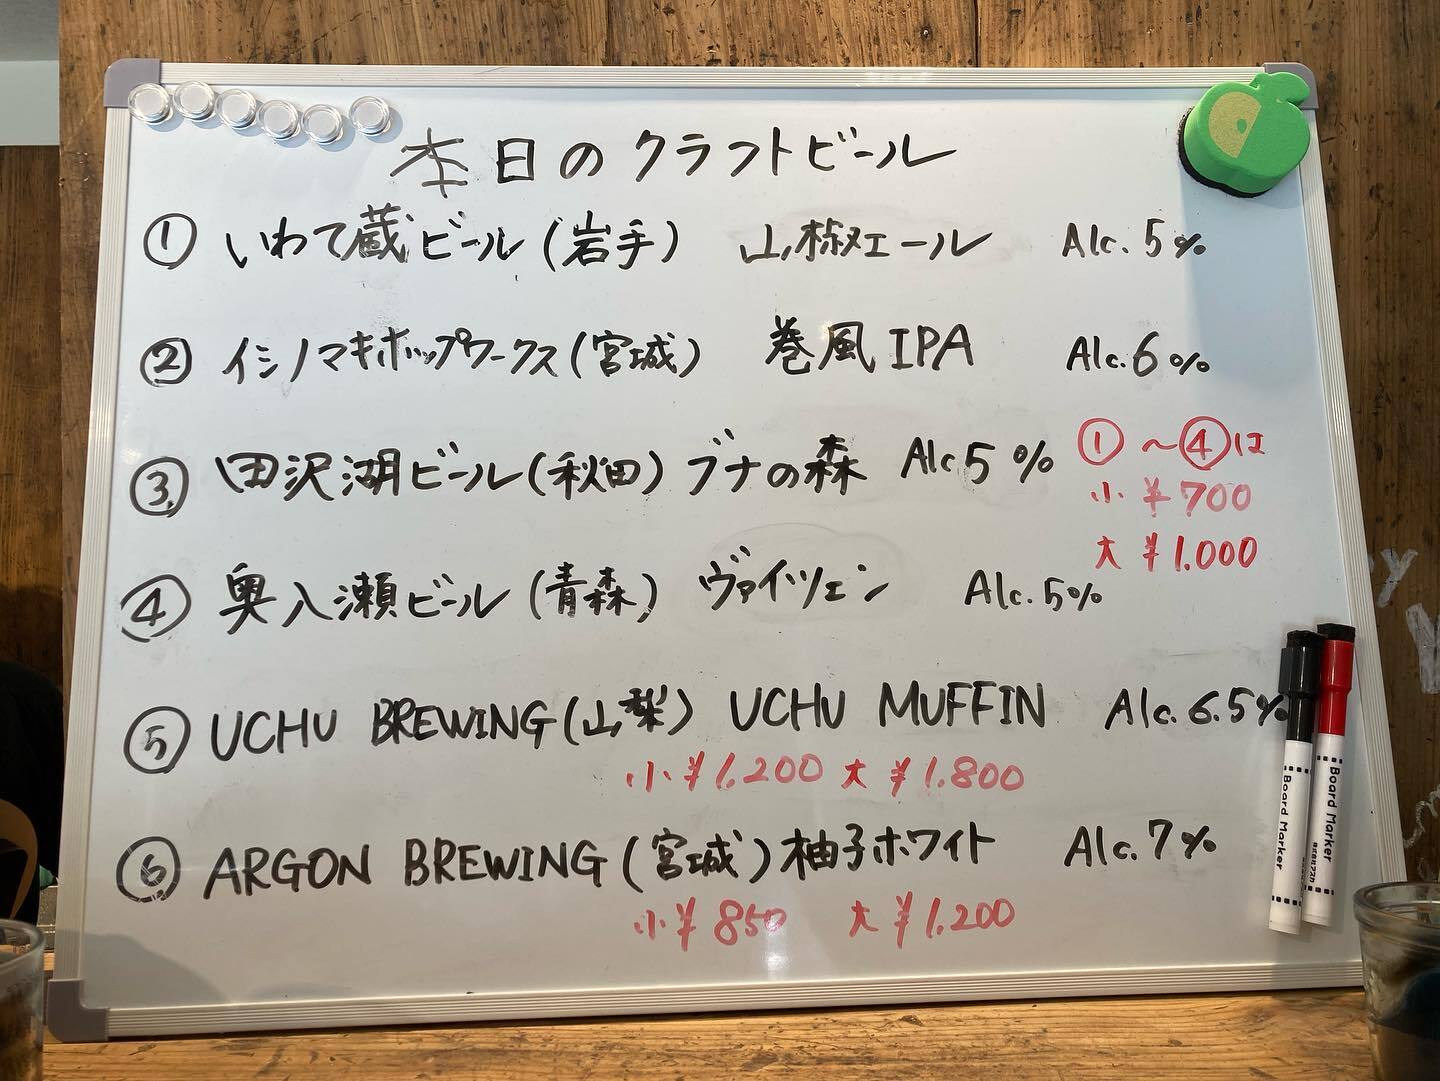 本日のクラフトビール
① いわて蔵ビール(岩手) 山椒エール Alc.5%
② イシノマキホップワークス(宮城) 巻風IPA Alc.6%
③ 田沢湖ビール(秋田) ブナの森 Alc5%
①〜④は
小 ¥700
大 ¥1.000
④ 奥入瀬ビール(青森) ヴァイツェン Alc.5%
⑤ UCHU BREWING(山梨) UCHU MUFFIN Alc.6.5%
小¥1.200 大¥1.800
⑥ ARGON BREWING(宮城)柚子ホワイト Alc.7%
小¥850 大¥1.200
Board Marker
Board Marker